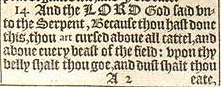 14. And the LORD God said vn-
to the Serpent, Because thou hast done
this, thou art cursed aboue all cattel, and
aboue euery beast of the field: vpon thy
belly shalt thou goe, and dust shalt thou
A 2 eate.